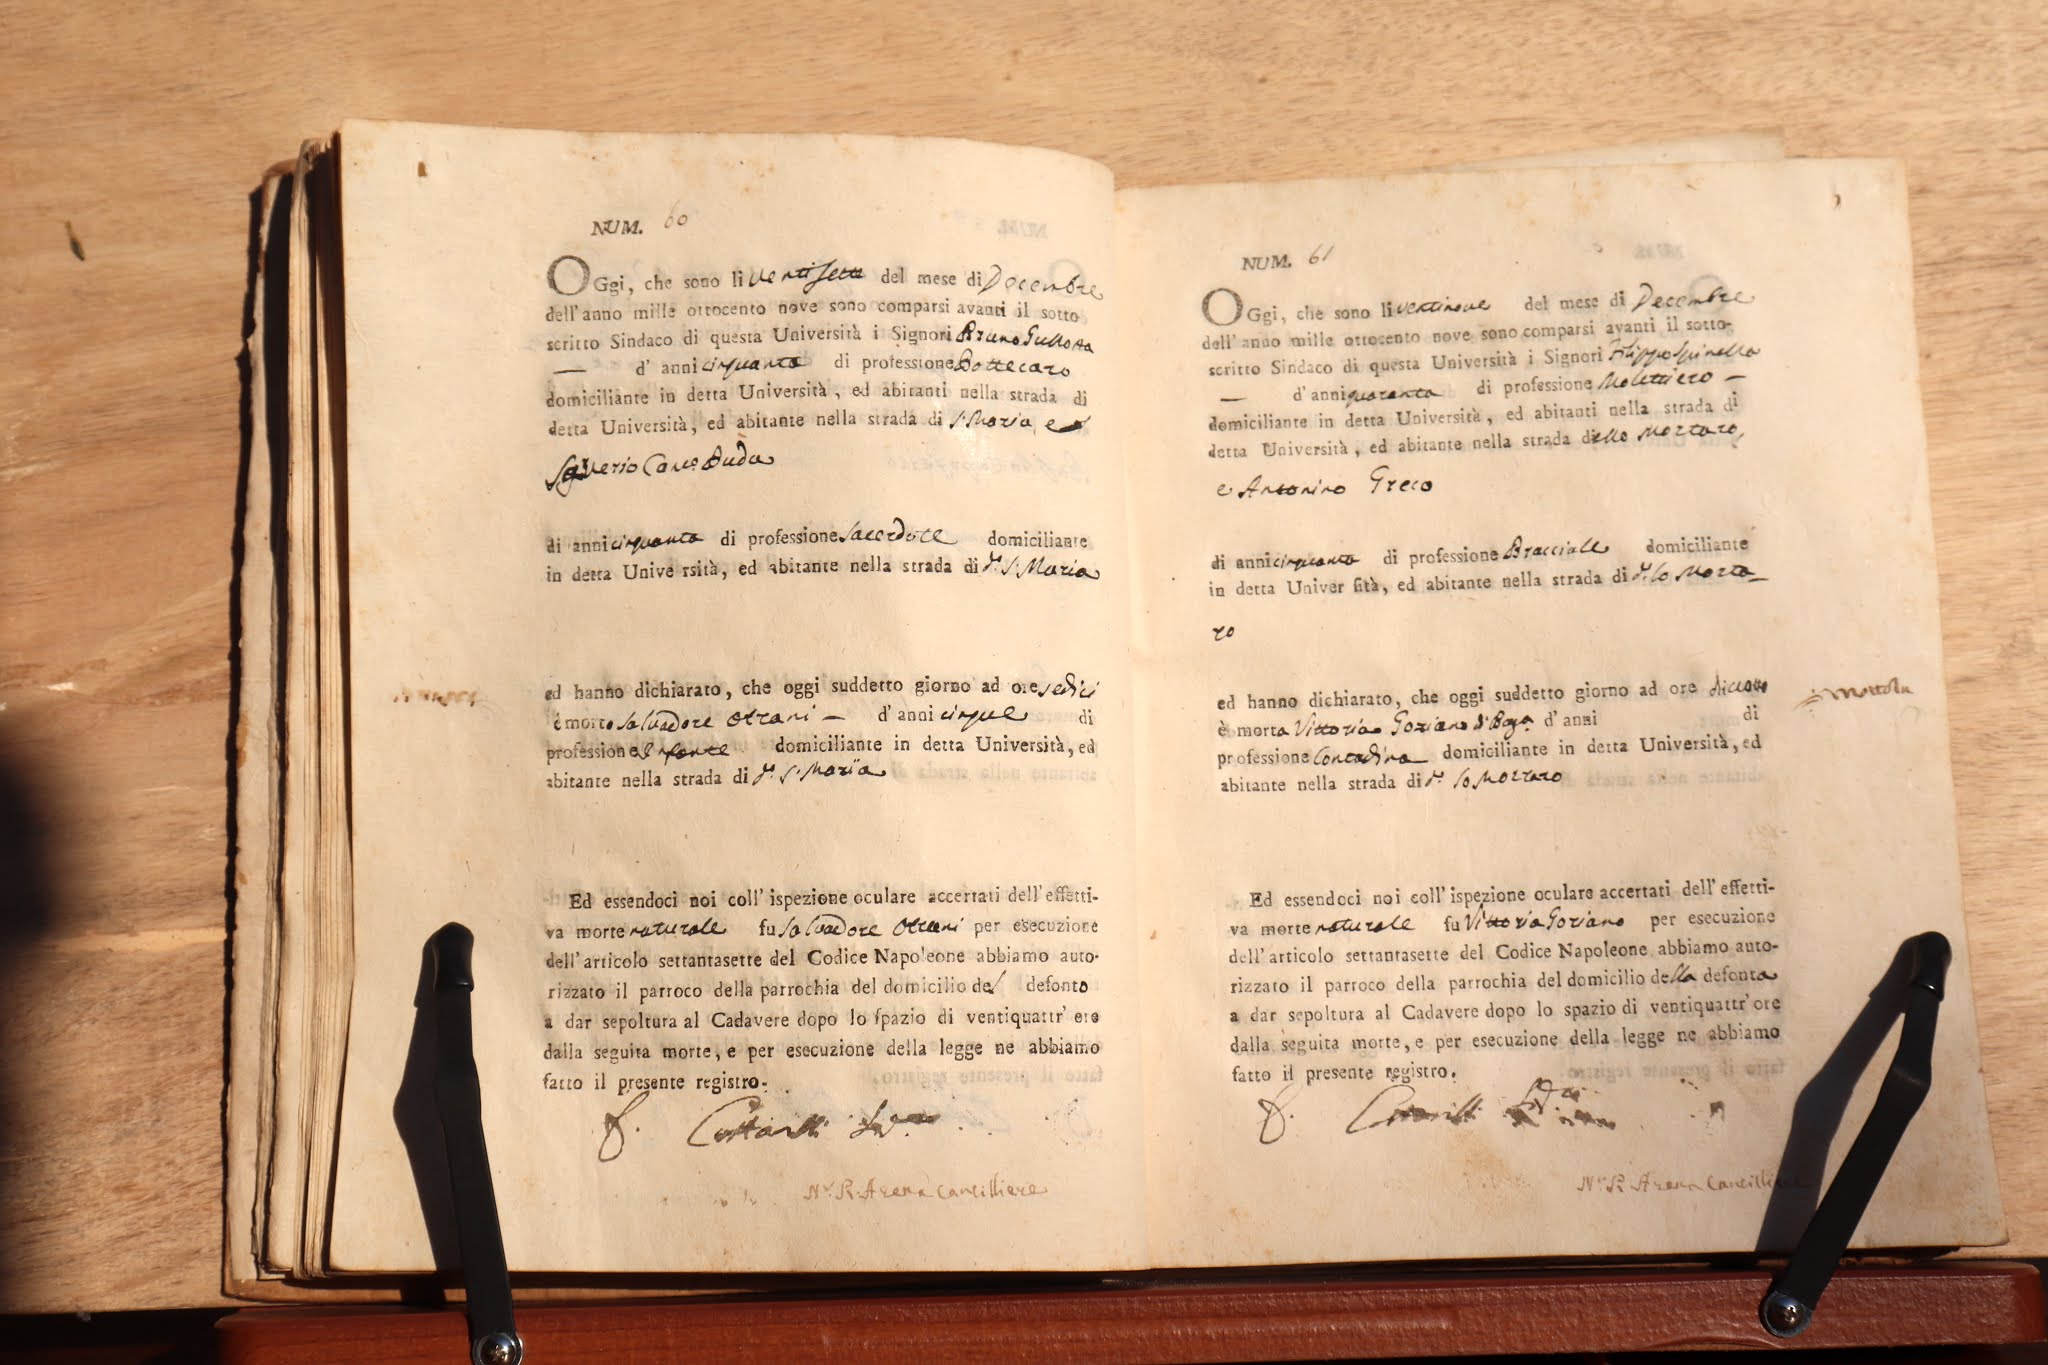 NUM. 60
OGgi, che sono li ventisette del mese di Decembre
dell'anno mille ottocento nove sono comparsi avanti il sotto
scritto Sindaco di questa Università i Signori Bruno Gullotta
— d' anni cinquanta di professione Bottecaro
domiciliante in detta Università, ed abitanti nella strada di
detta Università, ed abitante nella strada di S. Maria, e
Saverio Can.co Buda
di anni cinquanta di professione Sacerdote domiciliante
in detta Unive rsità, ed abitante nella strada di d.a S. Maria
ed hanno dichiarato, che oggi suddetto giorno ad ore sedici
è morto Salvadore Otrani — d' anni cinque di
professione Infante domiciliante in detta Università, ed
abitante nella strada di d.a S. Maria
Ed essendoci noi coll' ispezione oculare accertati dell' effetti-
va morte naturale fu Salvadore Otrani per esecuzione
dell'articolo settantasette del Codice Napoleone abbiamo auto-
rizzato il parroco della parrochia del domicilio del defonto
a dar sepoltura al Cadavere dopo lo spazio di ventiquattr' ore
dalla seguita morte, e per esecuzione della legge ne abbiamo
fatto il presente registro.
f.
N.r R. Arena Cancilliere
NUM. 61
OGgi, che sono li ventinove del mese di Decembre
dell' anno mille ottocento nove sono comparsi avanti il sotto-
scritto Sindaco di questa Università i Signori Filippo Spinella
— d' anni quaranta di professione Molettiero —
domiciliante in detta Università, ed abitanti nella strada di
detta Università, ed abitante nella strada dello Mortaro,
e Antonino Greco
di anni cinquanta di professione Bracciale domiciliante
in detta Univer sità, ed abitante nella strada di d.o lo Morta_
ro
ed hanno dichiarato, che oggi suddetto giorno ad ore diciotto
è morta Vittoria Goziano d' anni di
professione Contadina domiciliante in detta Università, ed
abitante nella strada di d.o lo Mortaro
Ed essendoci noi coll' ispezione oculare accertati dell' effetti-
va morte naturale fu Vittoria Goziano per esecuzione
dell' articolo settantasette del Codice Napoleone abbiamo auto-
rizzato il parroco della parrochia del domicilio della defonta
a dar sepoltura al Cadavere dopo lo spazio di ventiquattr' ore
dalla seguita morte, e per esecuzione della legge ne abbiamo
fatto il presente registro.
f.
N.r R. Arena Cancilliere